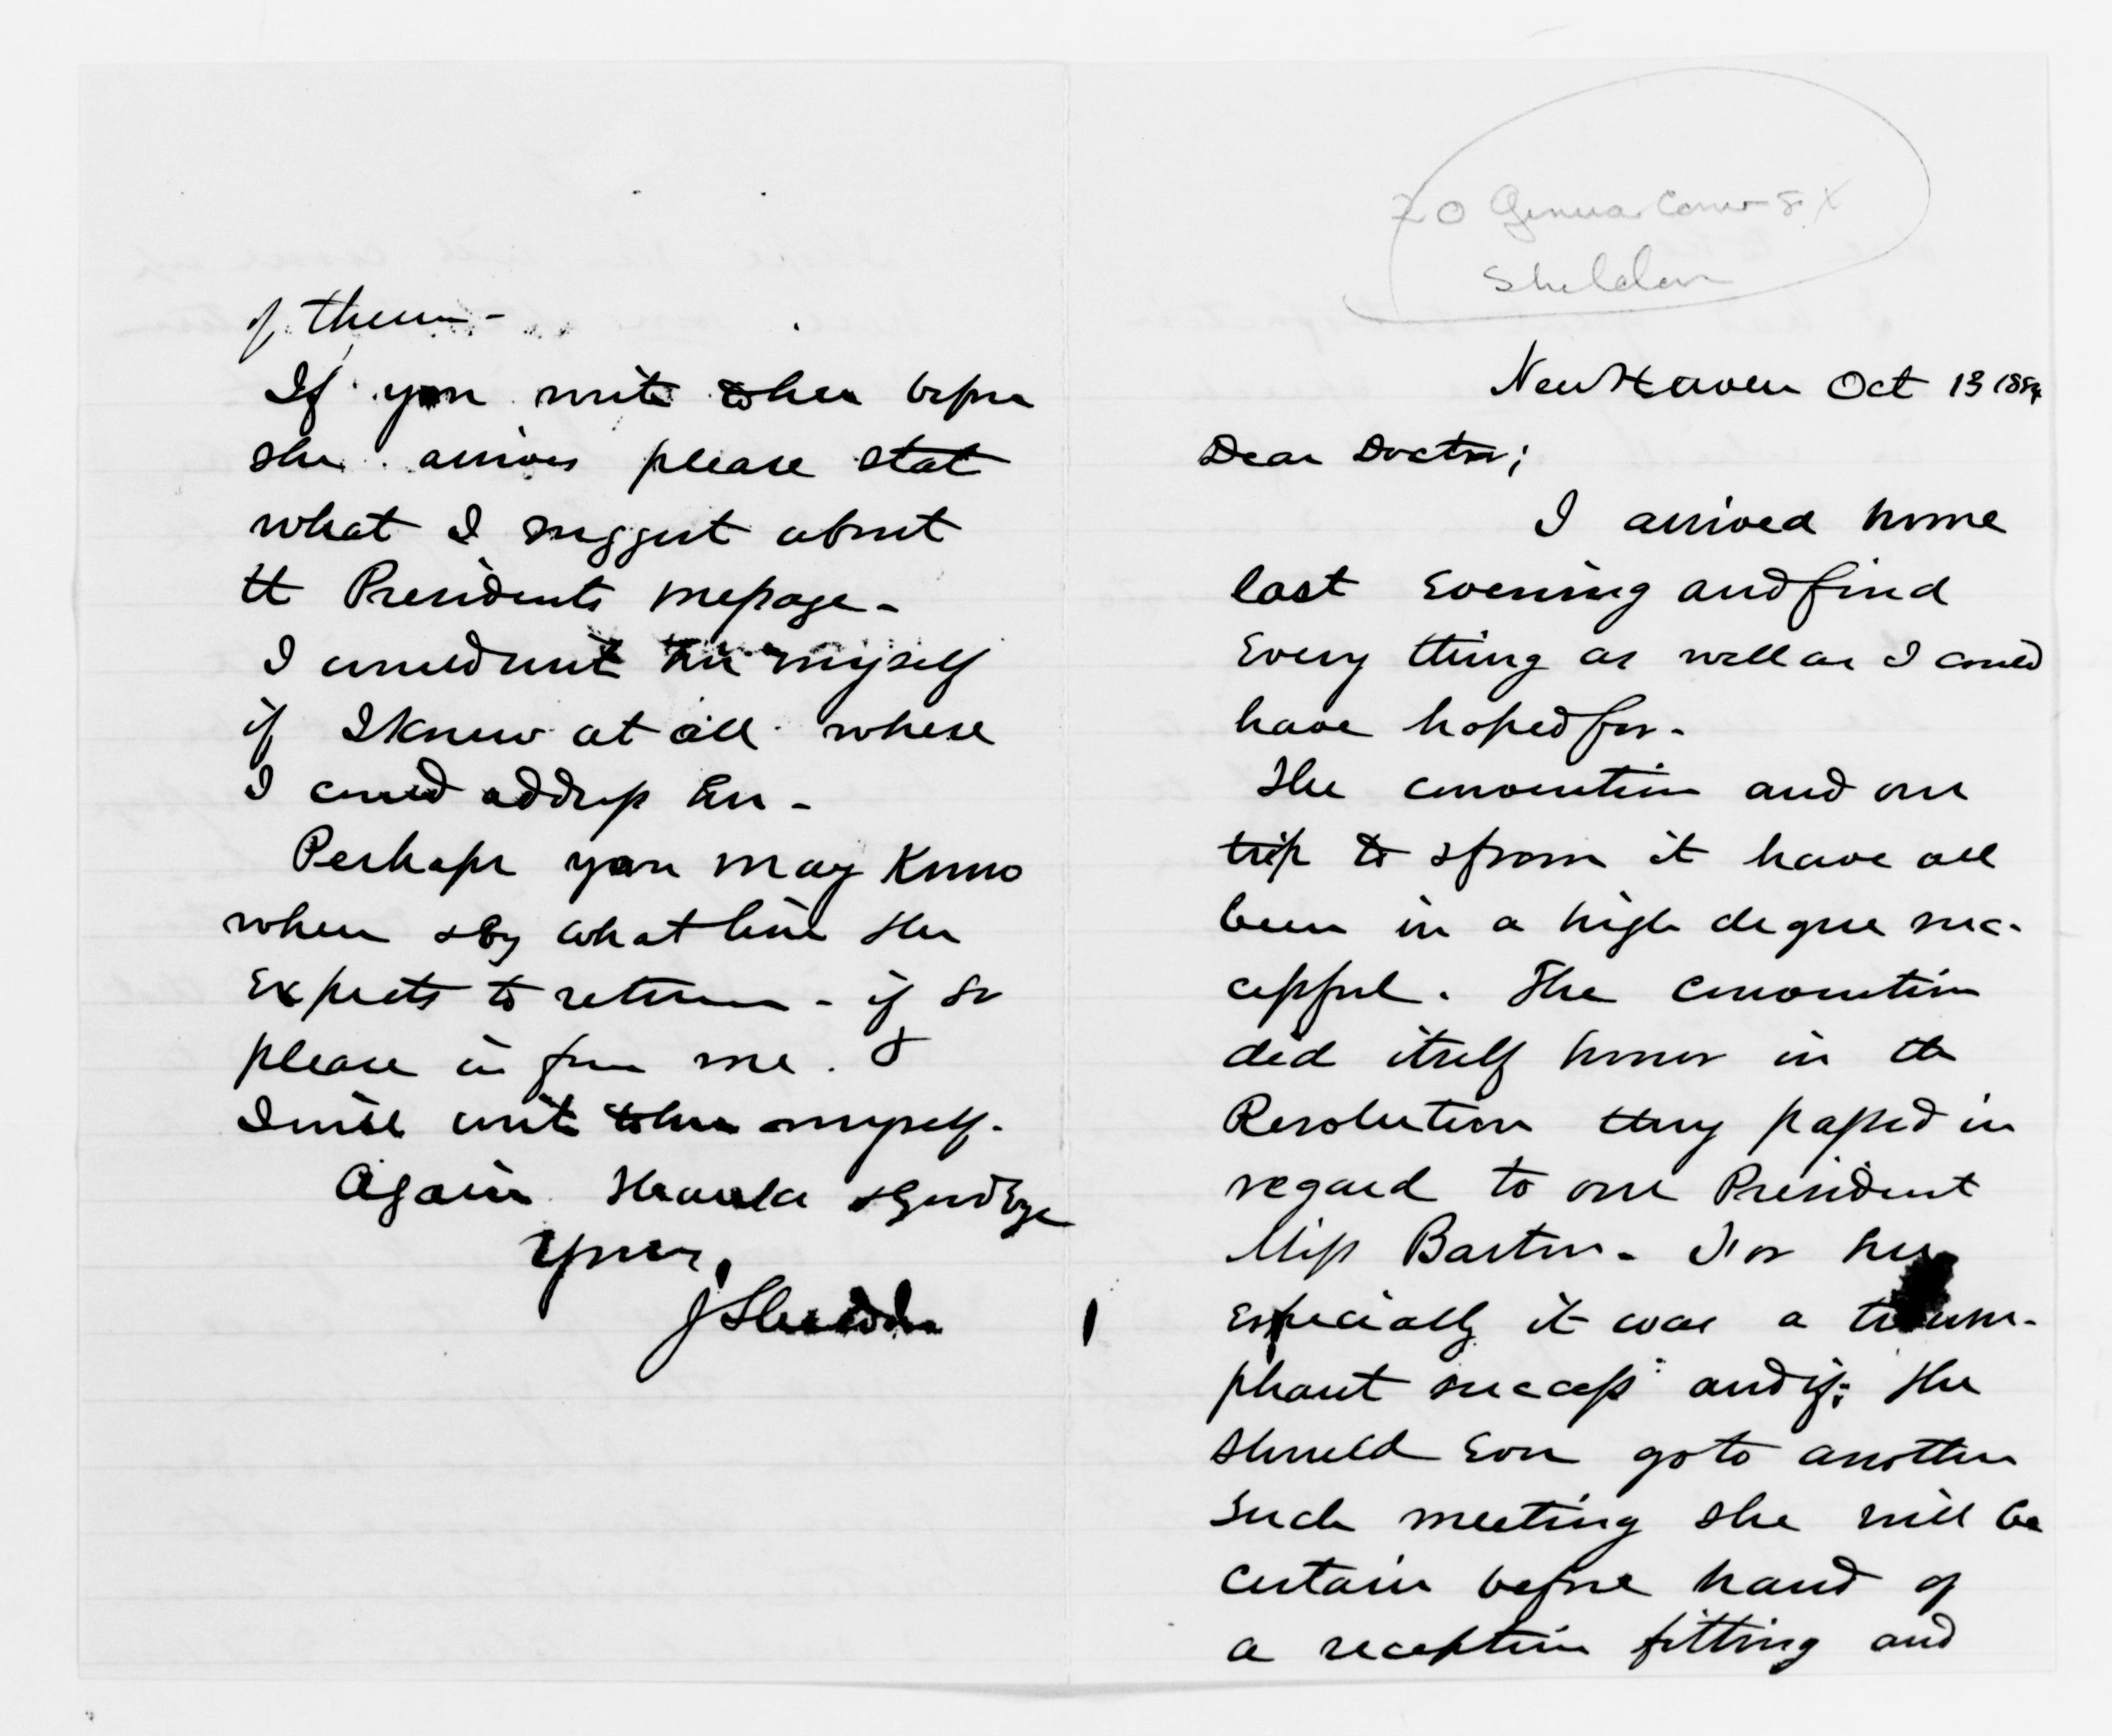 of them-
If you write to her before
she arrives please state
what I suggest about
the Presidents message-
I would write her myself
if I knew at all where
I could address her-
Perhaps you may know
when & by what line she
expects to return - if so
please inform me. &
I will write to her myself.
Again thanks & Good bye
Yours,
J Sheldon
20 Geneva Conv
Sheldon
New Haven Oct 13 1884
Dear Doctor;
I arrived home
last Evening and find
Every thing as well as I could
have hoped for-
The convention and our
trip to & from it have all
been in a high degree suc-
cessful. The Convention
did itself honor in the
Resolution they passed in
regard to our President
Miss Barton- For her
especially it was a trium-
phant success and if she
should Ever go to another
such meeting she will be
certain before hand of
a reception fitting and